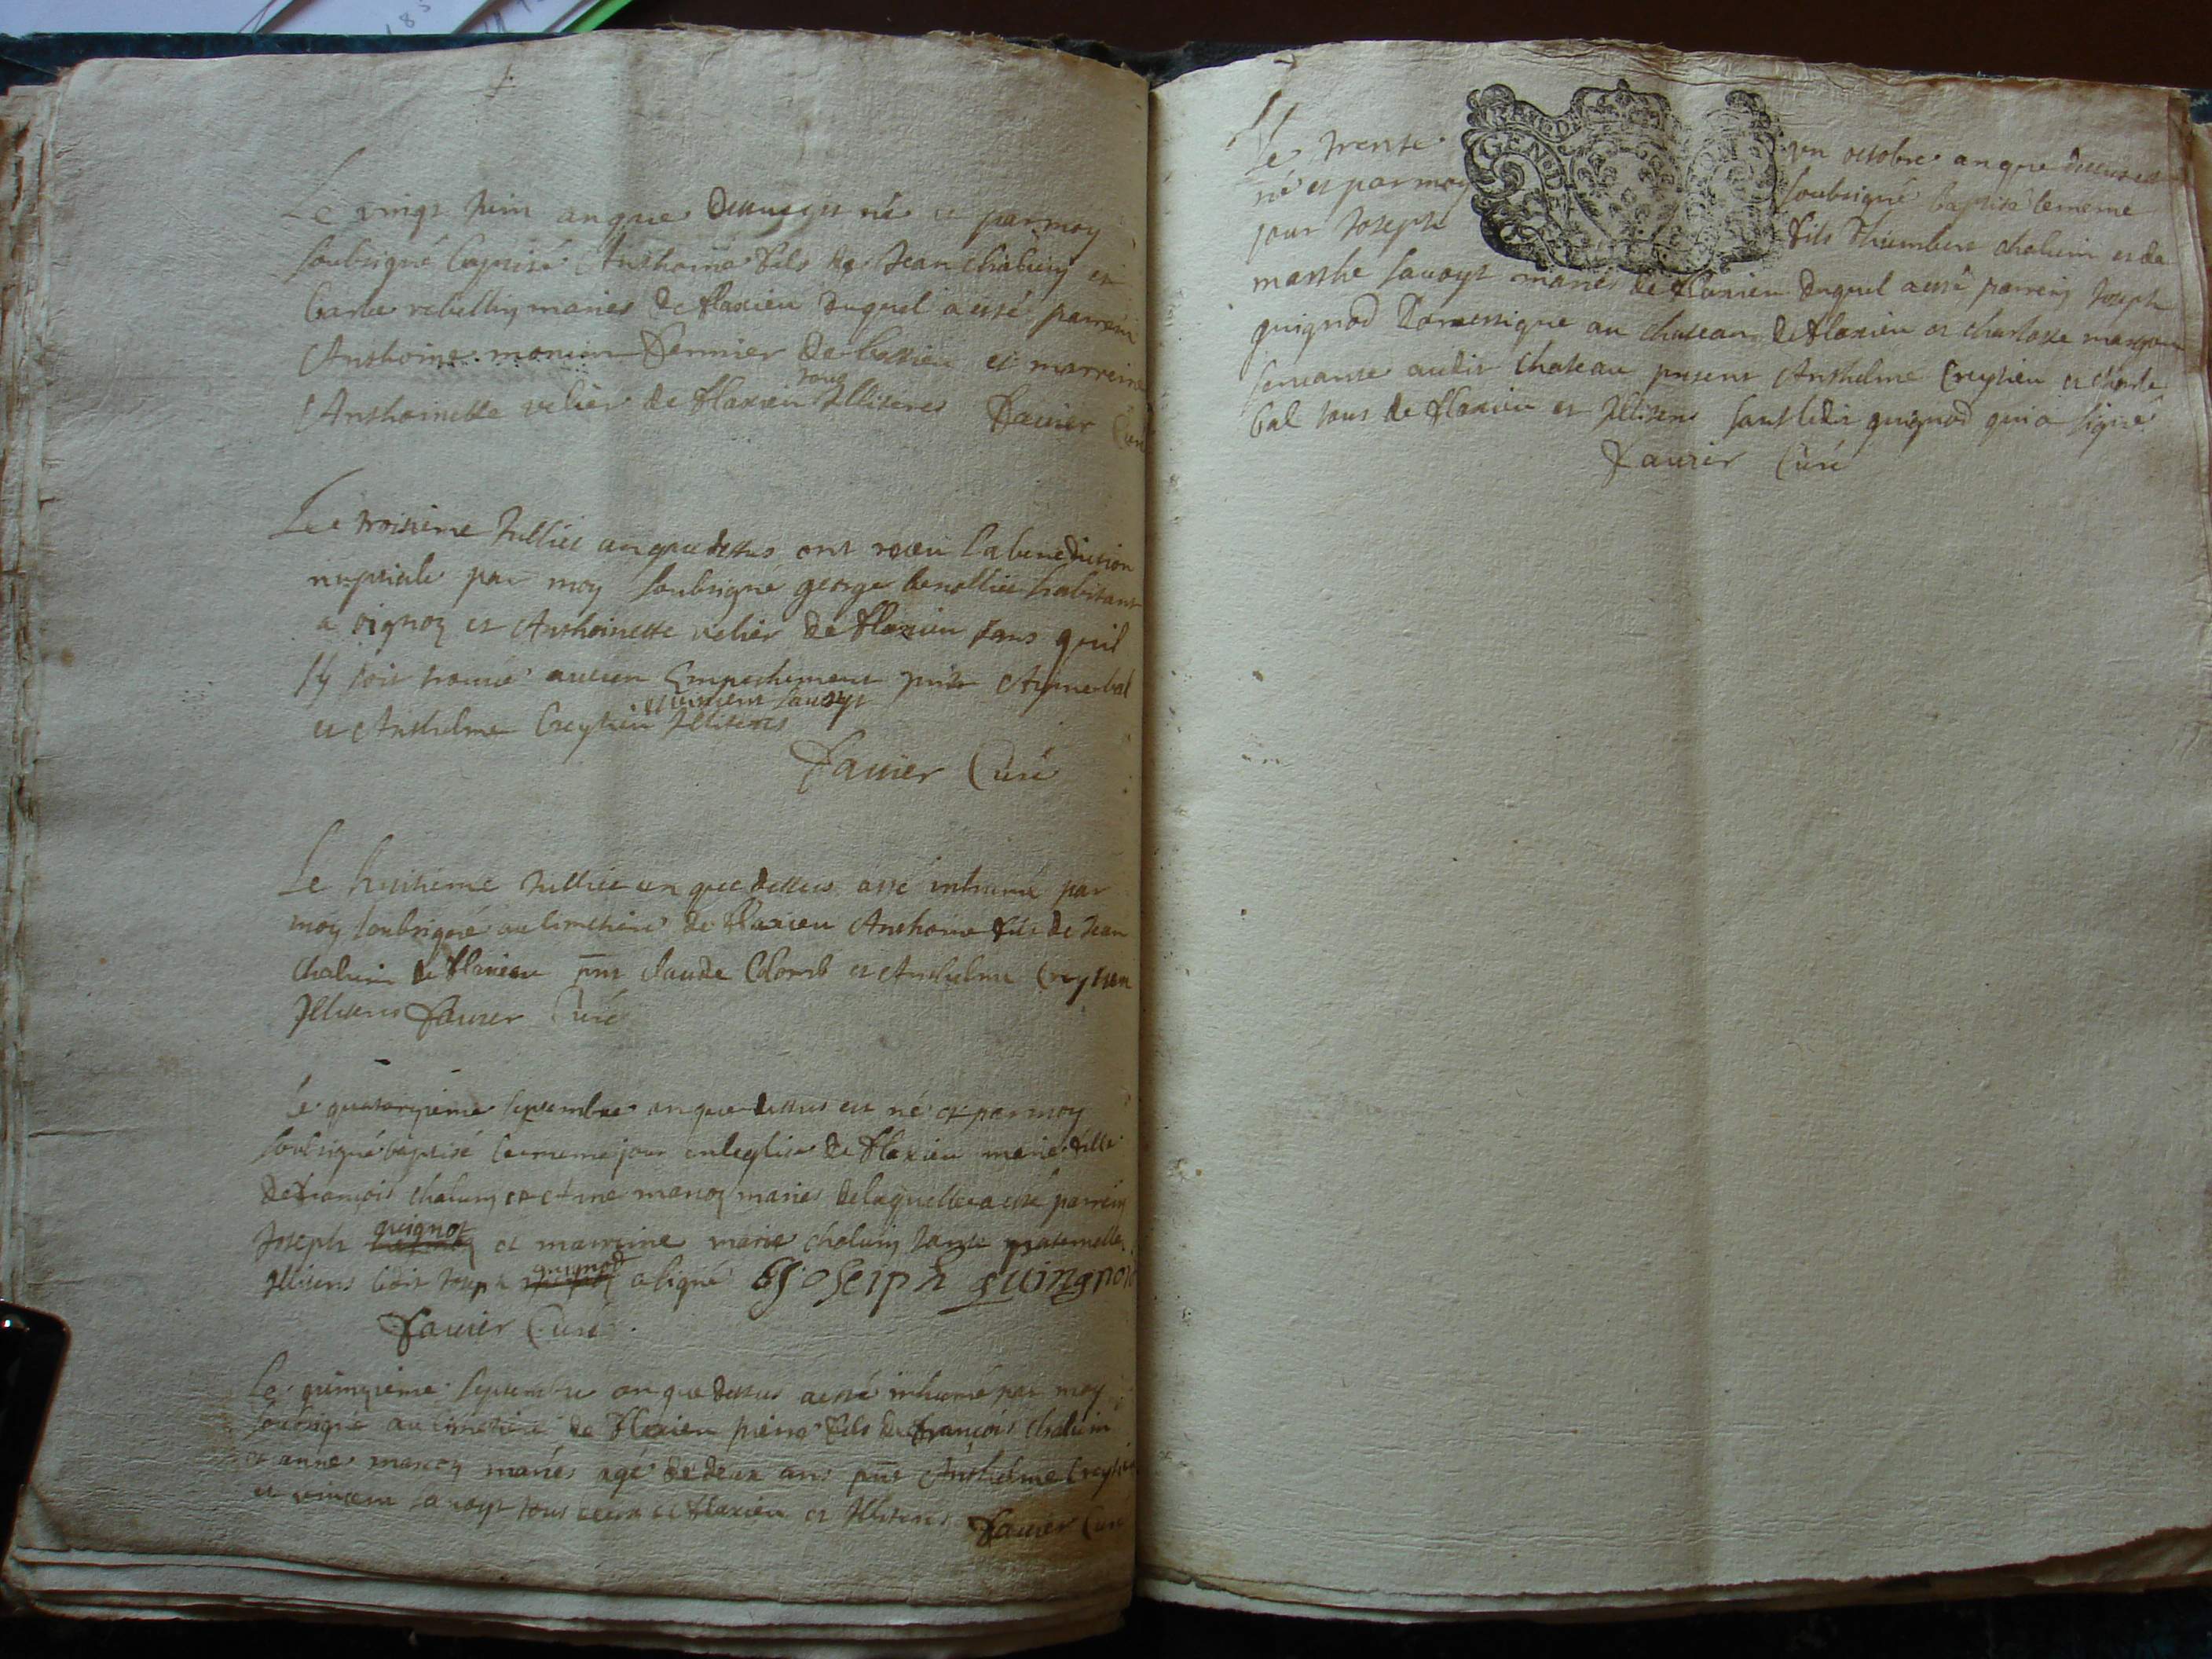 Le vingt Juin an que dessus est né et par moy
soubsigné baptisé Anthoine fils de Jean chaluin et
barbe rebellin mariés de flaxieu duquel a esté parrein
Anthoine monin fermier de et marreine
tous
Anthoinette velier de flaxieu Illiteres favier Curé
Le troisieme Julliet an que dessus ont receu la benediction
nuptiale par moy soubsigné george habitant
a et Anthoinette velier de flaxieu sans quil
sy soit trouvé aucun Empechement pnts Aymé bal
et vincent savoyt
et Anthelme Creytieu Illiteres
favier Curé
Le huitieme Julliet an que dessus a été inhumé par
moy soubsigné au cimetiere de flaxieu Anthoine fils de Jean
chaluin de flaxieu pnts claude Colomb et Anthelme Creytieu
Illiteres favier Curé
Le quatorzieme septembre an que dessus est né et par moy
soubsigné baptisé le meme jour en leglise de flaxieu marie fille
de françois chaluin et Anne mariés de laquelle a esté parrein
guignot
Joseph et marreine marie chaluin tante paternelle
guignod
Illiteres ledit Joseph a signé Joseiph guingnod
favier Curé
Le quinzieme septembre an que dessus a esté inhumé par moy
soubsigné au cimetiere de flaxieu pierre fils de françois chaluin
et anne mariés agé de deux ans pnts Anthelme Creytieu
et vincent savoyt tous deux de flaxieu et Illiteres favier Curé
Le trente GEN D un octobre an que dessus est
né et par moy soubsigné baptisé le meme
jour Joseph fils d'humbert chaluin et de
marthe savoyt mariés de flaxieu duquel a esté parrein Joseph
guignod Domestique au chateau de flaxieu et charlotte
servante audit chateau present Anthelme Creytieu et
bal tous de flaxieu et Illiteres sauf ledit guignod qui a signé
favier Curé